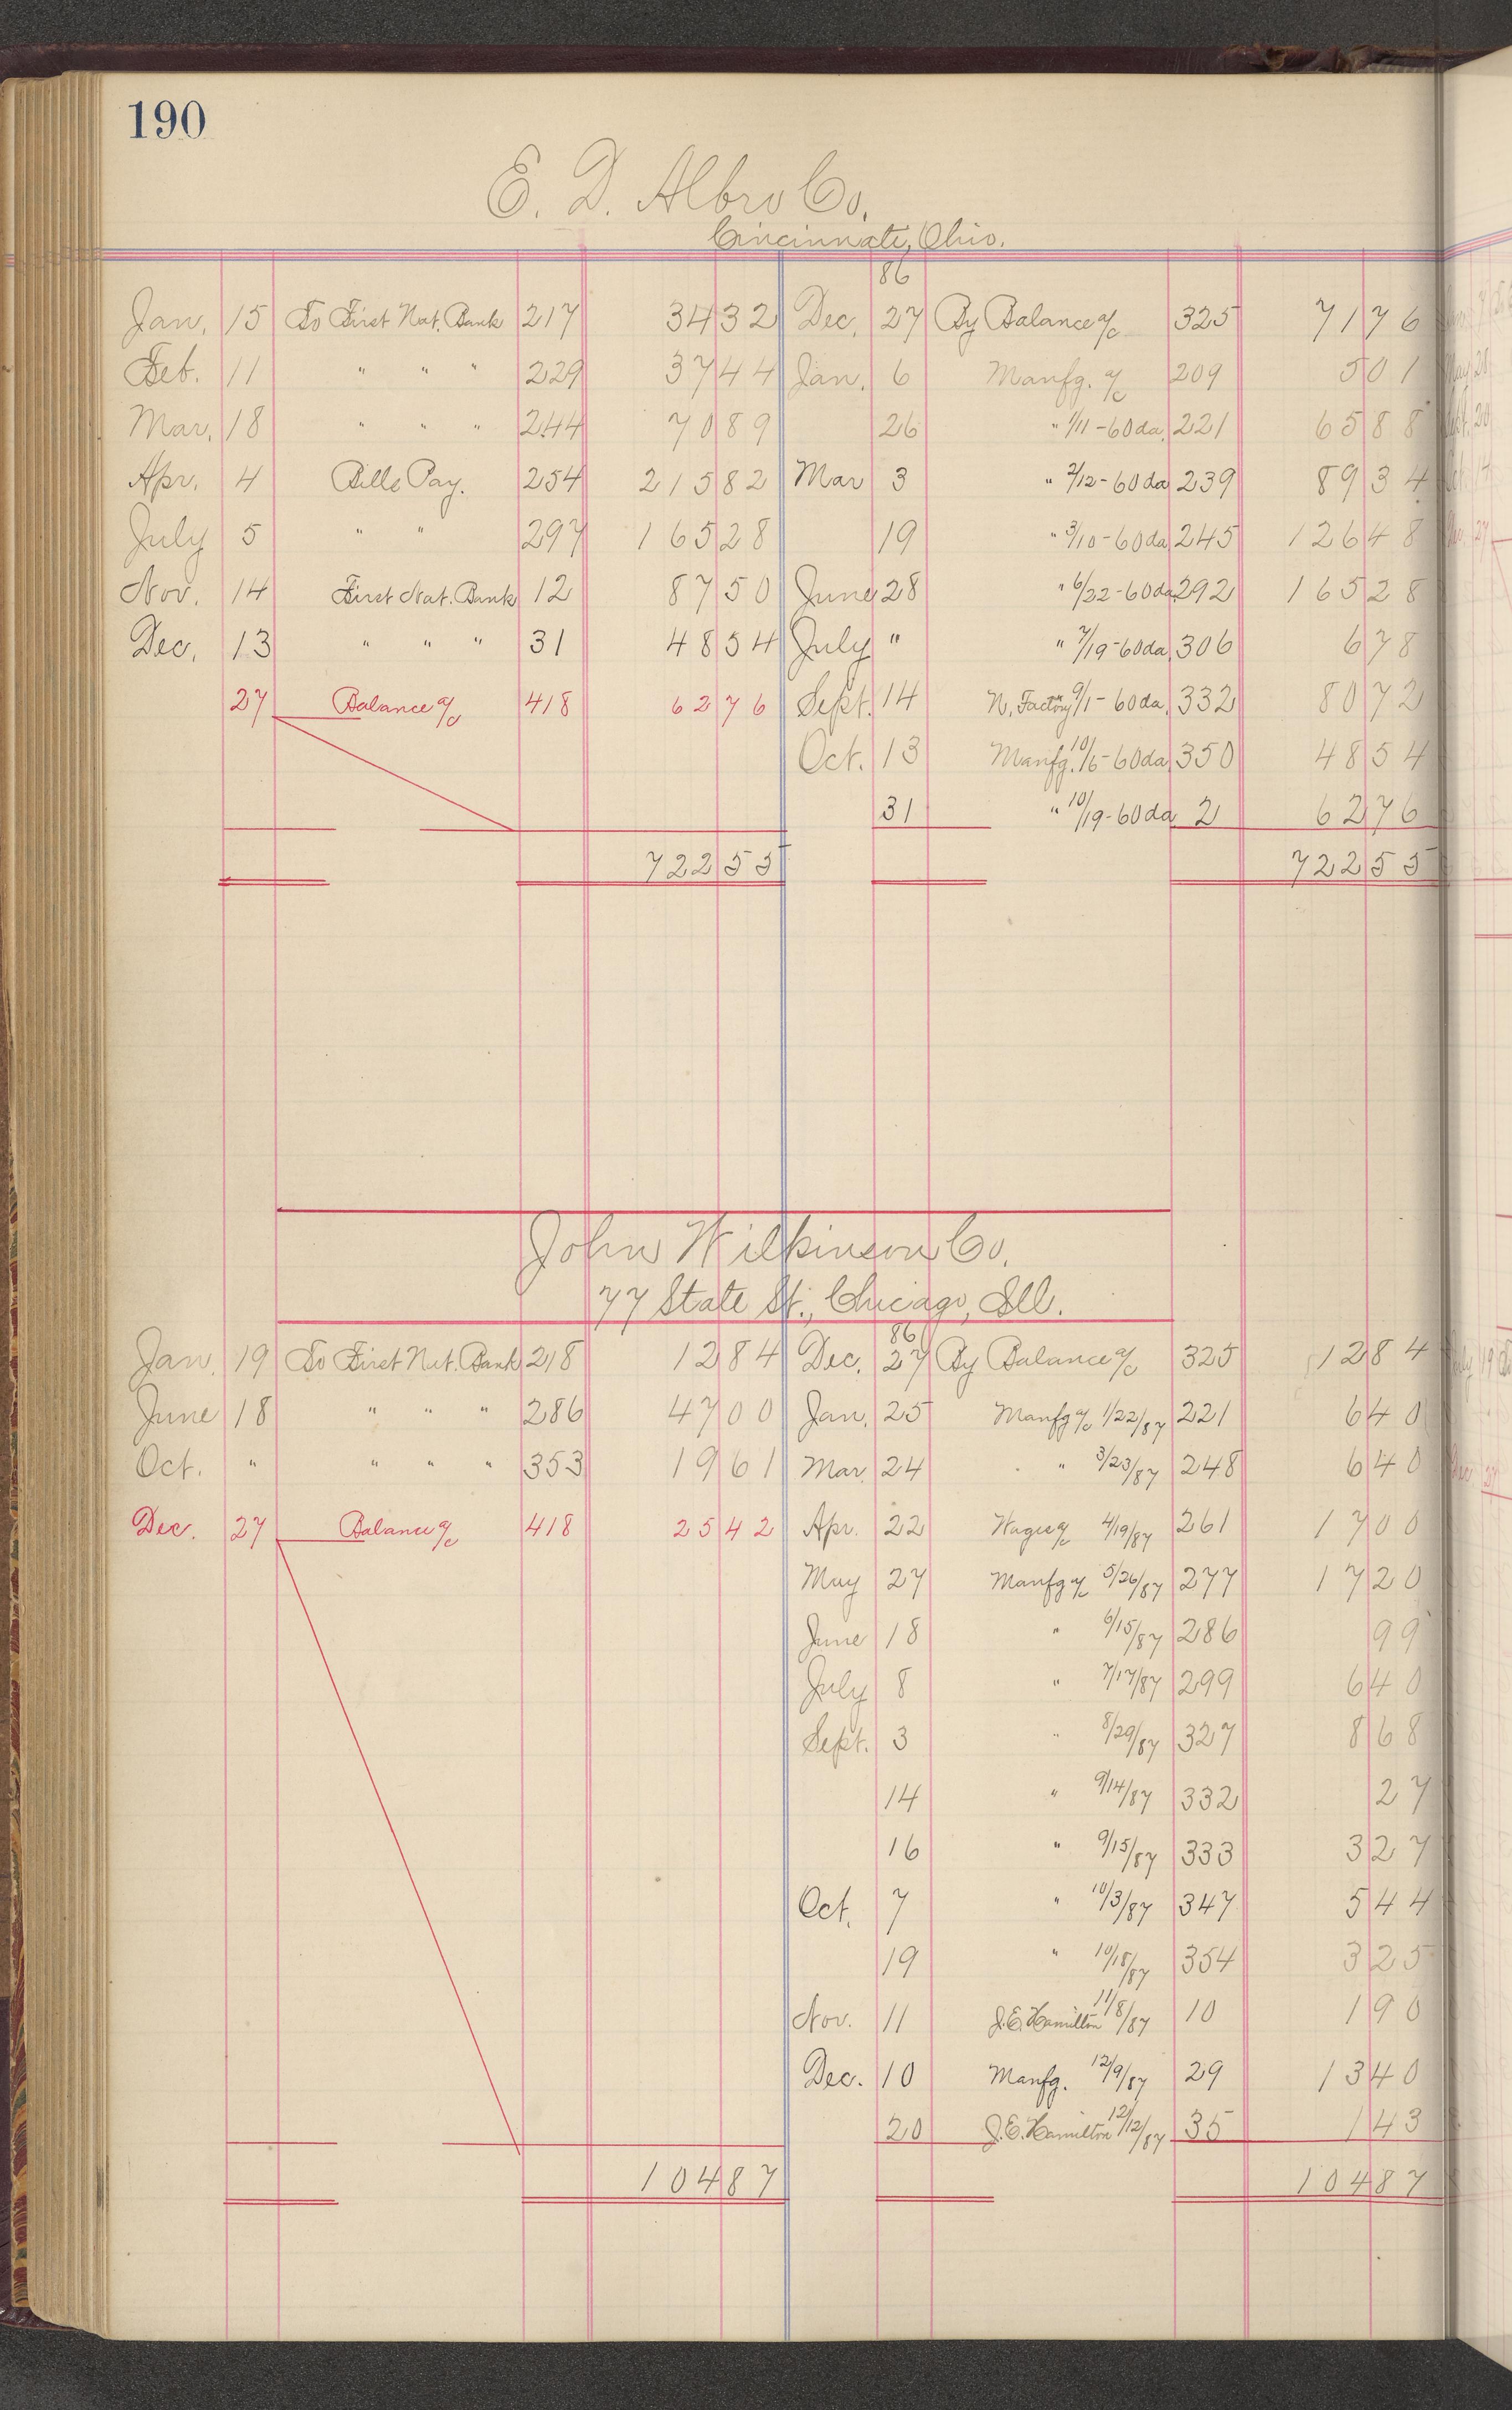 190
E. D. Albro Co.
Cincinnate, Ohio.
86
Jan. 15 To First Nat. Bank 217 34 32 Dec. 27 By Balance a/c 325 71 76
Feb. 11 " " " 229 37 44 Jan. 6 Manfg. a/c 209 5 01
Mar. 18 " " " 244 70 89 26 " 1/11-60da. 221 65 88
Apr. 4 Bills Pay. 254 215 82 Mar 3 " 2/12-60da 239 89 34
July 5 " " 297 165 28 19 " 3/10-60da 245 126 48
Nov. 14 First Nat. Bank 12 87 50 June 28 " 6/22-60da 292 165 28
Dec. 13 " " " 31 48 54 July " " 7/19-60da. 306 6 78
27 Balance a/c 418 62 76 Sept. 14 N. Factory 9/1-60da. 332 80 72
Oct. 13 Manfg. 10/6-60da 350 48 54
31 " 10/19-60da 2 62 76
722 55 722 55
John Wilkinson Co.
77 State St., Chicago, Ill.
86
Jan. 19 To First Nat. Bank 218 12 84 Dec. 27 By Balance a/c 325 12 84
June 18 " " " 286 47 00 Jan. 25 Manfg a/c 1/22/87 221 6 40
Oct. " " " " 353 19 61 Mar. 24 " 3/23/87 248 6 40
Dec. 27 Balance a/c 418 25 42 Apr. 22 Wages a/c 4/19/87 261 17 00
May 27 Manfg a/c 5/26/87 277 17 20
June 18 " 6/15/87 286 99
July 8 " 7/17/87 299 6 40
Sept. 3 " 8/29/87 327 8 68
14 " 9/14/87 332 27
16 " 9/15/87 333 3 27
Oct. 7 " 10/3/87 347 5 44
19 " 10/18/87 354 3 25
Nov. 11 J.E. Hamilton 11/8/87 10 1 90
Dec. 10 Manfg. 12/9/87 29 13 40
20 J.E. Hamilton 12/12/87 35 1 43
104 87 104 87